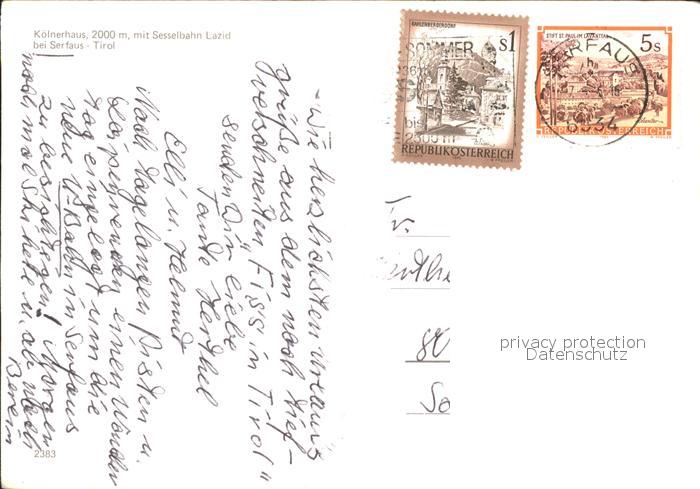 Kölnerhaus, 2000 m, mit Sesselbahn Lazid
bei Serfaus - Tirol
"Die herzlichsten Urlaubs
grüße aus dem noch tief-
verschneiten Fiss in Tirol"
senden Dir liebe
Tante
Elli u. Helmut
Nach tagelangen Pisten u.
einen Wander
tag eingelegt um die
neue U-Bahn in Serfaus
zu besichtigen! Morgen
noch mal Ski u. ab nach
2383
KAHLENBERGERDORF
S1
REPUBLIK ÖSTERREICH
SOMMER
bis
2500 m
STIFT ST. PAUL IM LAVANTTAL
5s
REPUBLIK ÖSTERREICH
SERFAUS
6534
Fr.
So
privacy protection
Datenschutz